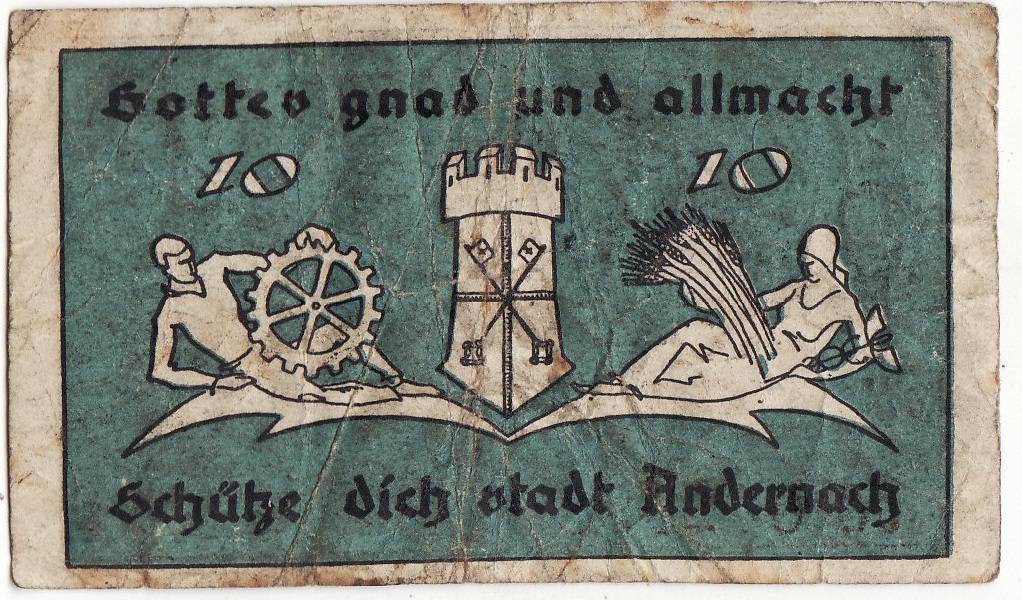 Gottes gnad und allmacht
10 10
Schütze dich stadt Andernach